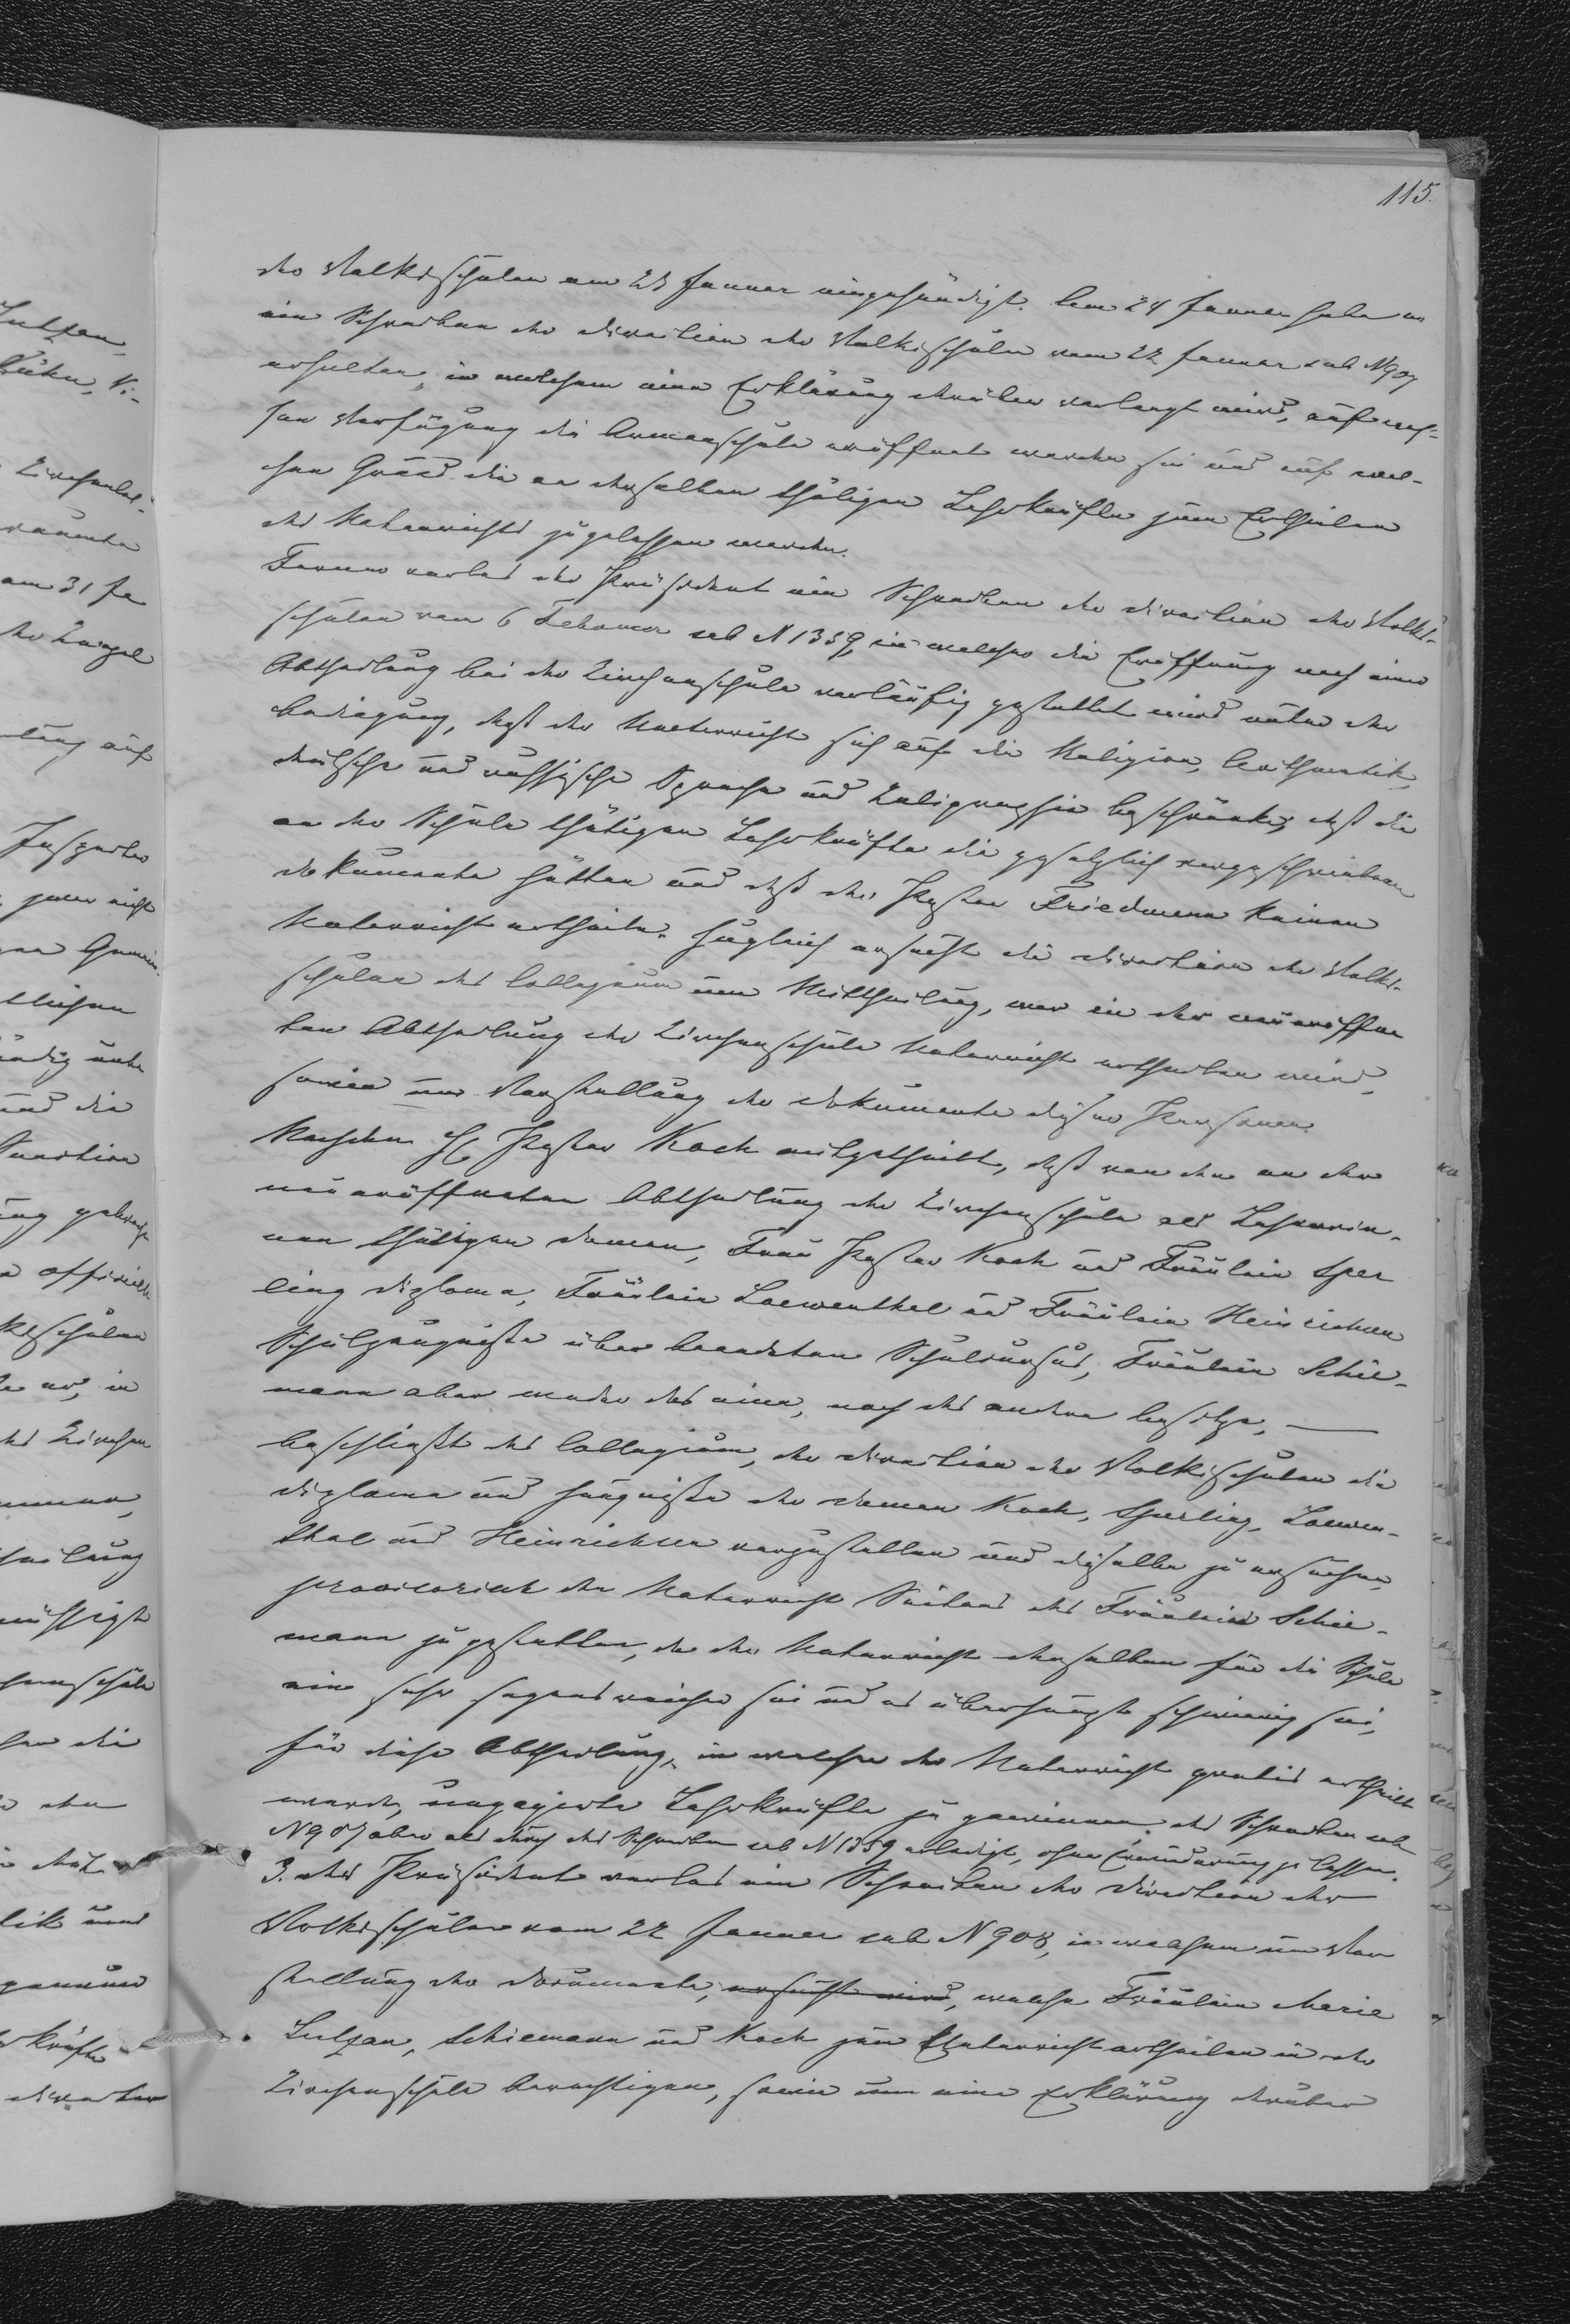 115.
der Volksschulen am 23 Januar eingehändigt. Am 24 Januar habe er
ein Schreiben der Direction der Volksschulen vom 22 Januar sub N 907
erhalten, in welchem eine Erklärung darüber verlangt wird, auf wes-
sen Verfügung die Armenschule eröffnet worden sei und auf wel-
chen Grund die an derselben thätigen Lehrkräfte zum Ertheilen
des Unterrichts zugelassen worden.
Ferner verlas der Präsident ein Schreiben der Direction der Volks-
schulen vom 6 Februar sub N 1359, in welcher die Eröffnung noch einer
Abtheilung bei der Kirchenschule vorläufig gestattet wird unter der
Bedingung, daß der Unterricht sich auf die Religion, Arithmetik,
deutsche und russische Sprache und Kalligraphie beschränke, daß die
an der Schule thätigen Lehrkräfte die gesetzlich vorgeschriebenen
Dokumente hätten und daß der Pastor Friedmann keinen
Unterricht ertheile. Zugleich ersucht die Direction der Volks-
schulen das Collegium um Mittheilung, wer in der neueröffne
ten Abtheilung der Kirchenschule Unterricht ertheilen wird,
sowie um Vorstellung der Dokumente dieser Personen.
Nachdem H. Pastor Koch mitgetheilt, daß von den an der
neueröffneten Abtheilung der Kirchenschule als Lehrerin-
nen thätigen Damen, Frau Pastor Koch und Fräulein Sper
ling Diplome, Fräulein Loewenthal und Fräulein Heinrichsen
Schulzeugniße über beendeten Schulcursus, Fräulein Schie-
mann aber weder das eine, noch das andere besitze, —
beschließt das Collegium, der Direction der Volksschulen die
Diplome und Zeugniße der Damen Koch, Sperling, Loewen-
thal und Heinrichsen vorzustellen und dieselbe zu ersuchen,
provisorisch den Unterricht Seitens des Fräuleins Schie-
mann zu gestatten, da der Unterricht derselben für die Schule
ein sehr segensreicher sei und es überhaupt schwierig sei,
für diese Abtheilung, in welcher der Unterricht gratis ertheilt
werde, engagirte Lehrkräfte zu gewinnen. das Schreiben sub
N 907 aber als durch das Schreiben sub N 1359 erledigt, ohne Erwiderung zu lassen.
3. Der Präsident verlas ein Schreiben der Direction der
Volksschulen vom 22 Januar sub N 908, in welchem um Vor
stellung der Documente, ersucht wird, welche Fräulein Marie
Lutzau, Schiemann und Koch zum Unterrichtertheilen in der
Kirchenschule berechtigen, sowie um eine Erklärung darüber